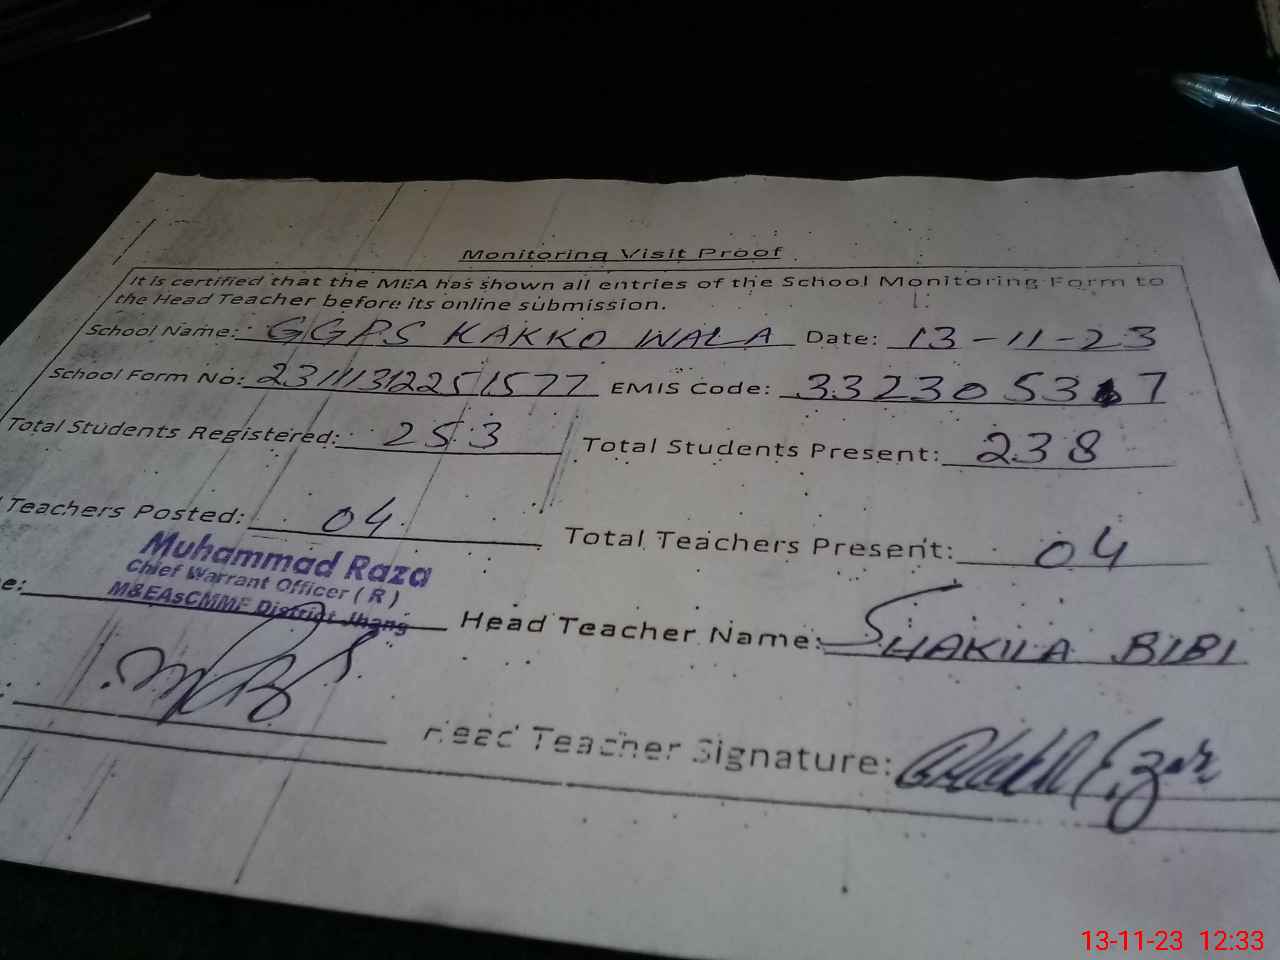 Monitoring Visit Proof
It is certified that the MEA has shown all entries of the School Monitoring Form to
the Head Teacher before its online submission.
School Name: GGPS KAKKO WALA Date: 13-11-23
School Form No: 231113122251577 EMIS Code: 33230 53 7
Total Students Registered: 253 Total Students Present: 238
Teachers Posted: 04 Total Teachers Present: 04
Muhammad Raza
Chief Warrant Officer (R)
M&EAsCMMF District Jhang
e: Head Teacher Name: SHAKILA BIBI
: Head Teacher Signature:
13-11-23 12:33